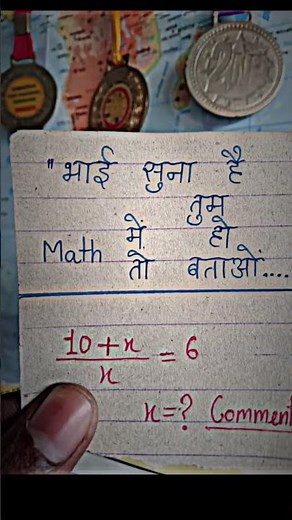 "भाई सुना है
तुम
Math में हो
तो बताओं....
10+x/x = 6
x=? Comment